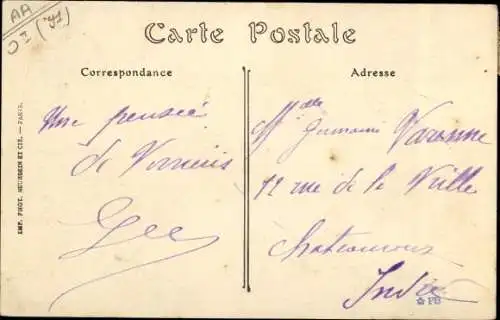 AA
Carte Postale
Correspondance
Adresse
Une pensée
de
Gee
Mlle Germaine Varenne
12 rue de la Ville
Chateauroux
Indre
PB
IMP. PHOT. NEURDEIN ET CIE. — PARIS.